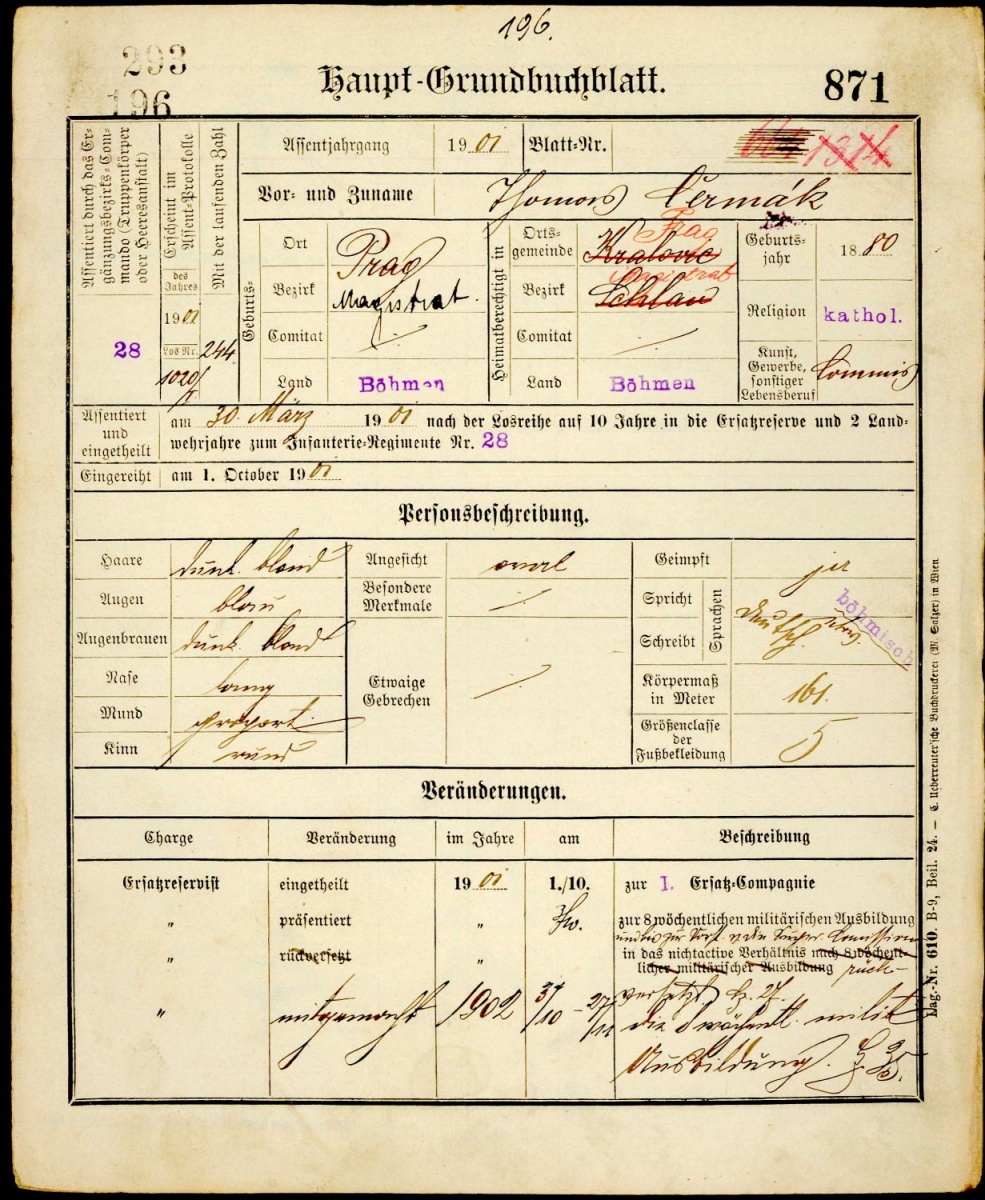 196.
293
196
Haupt-Grundbuchblatt.
871
Assentiert durch das Er-
gänzungsbezirks-Com-
mando (Truppenkörper
oder Heeresanstalt)
28
Erscheint im
Assent-Protokolle
des
Jahres
1901
Los Nr.
1020/I
Mit der laufenden Zahl
244
Assentjahrgang 1901 Blatt-Nr. 1314
Vor- und Zuname Thomas Čermák
Geburts-
Ort Prag
Bezirk Magistrat.
Comitat
Land Böhmen
Heimatberechtigt in
Orts-
gemeinde Kralovic Prag
Bezirk Schlan Magistrat
Comitat
Land Böhmen
Geburts-
jahr 1880
Religion kathol.
Kunst,
Gewerbe,
sonstiger
Lebensberuf Commis
Assentiert
und
eingetheilt
am 30. März 1901 nach der Losreihe auf 10 Jahre in die Ersatzreserve und 2 Land-
wehrjahre zum Infanterie-Regimente Nr. 28
Eingereiht am 1. October 1901
Personsbeschreibung.
Haare dunk. blond
Augen blau
Augenbrauen dunk. blond
Nase lang
Mund proport.
Kinn rund
Angesicht oval
Besondere
Merkmale
Etwaige
Gebrechen
Geimpft ja
Spricht
Schreibt
Sprachen
deutsch böhmisch
Körpermaß
in Meter 161.
Größenclasse
der
Fußbekleidung 5
Veränderungen.
Charge Veränderung im Jahre am Beschreibung
Ersatzreservist eingetheilt 1901 1./10. zur I. Ersatz-Compagnie
" präsentiert " zur 8wöchentlichen militärischen Ausbildung
" rückversetzt " in das nichtactive Verhältnis nach 8wöchent-
licher militärischer Ausbildung rück-
versetzt
" mitgemacht 1902 3/10 - 27/11 die 8 wöchentl. milit
Ausbildung.
Lag.-Nr. 610. B-9, Beil. 24. — C. Ueberreuter'sche Buchdruckerei (M. Salzer) in Wien